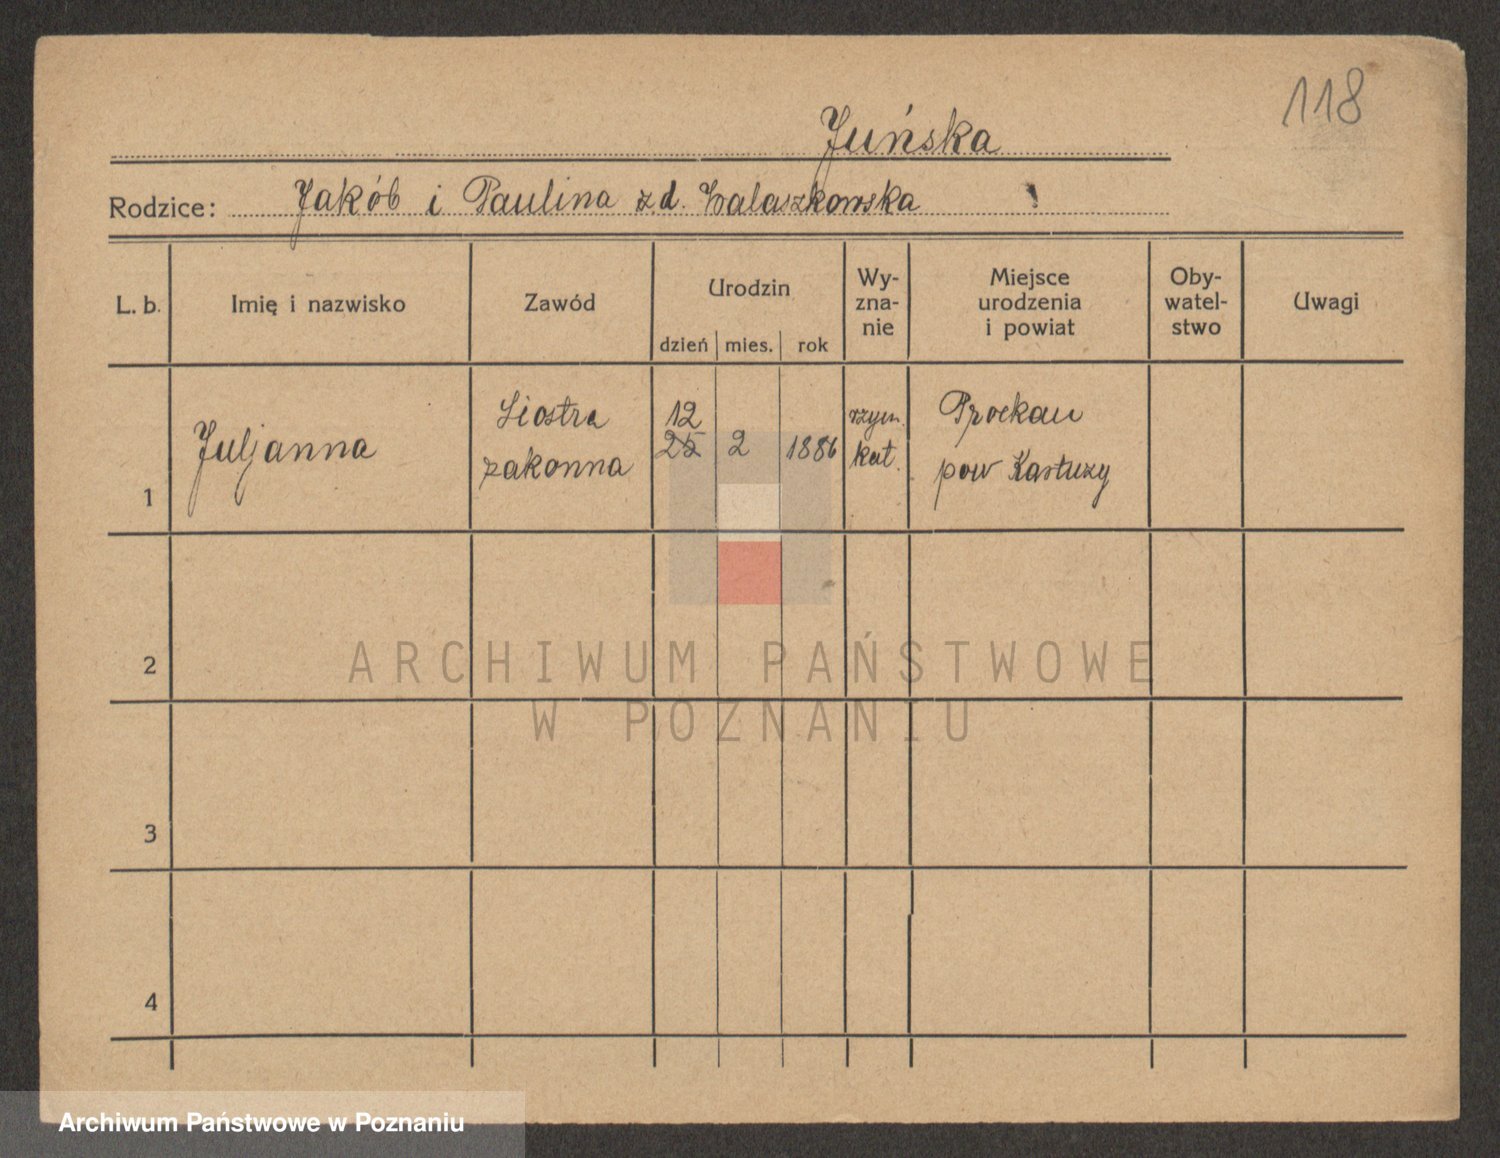 118
Juńska
Rodzice: Jakób i Paulina z.d. Walaszkowska
L. b. Imię i nazwisko Zawód Urodzin Wy-zna-nie Miejsce urodzenia i powiat Oby-watel-stwo Uwagi
dzień mies. rok
1 Juljanna Siostra zakonna 12 25 2 1886 rzym. kat. Prockau pow Kartuzy
2
ARCHIWUM PAŃSTWOWE
W POZNANIU
3
4
Archiwum Państwowe w Poznaniu